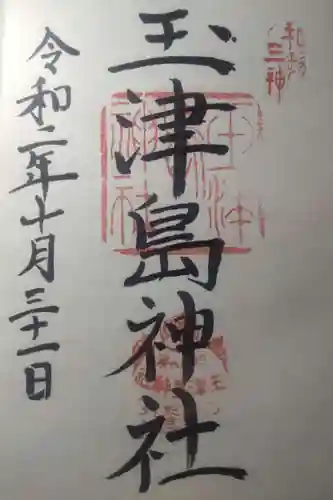 和歌
三神
玉津島神社
令和二年十月三十一日